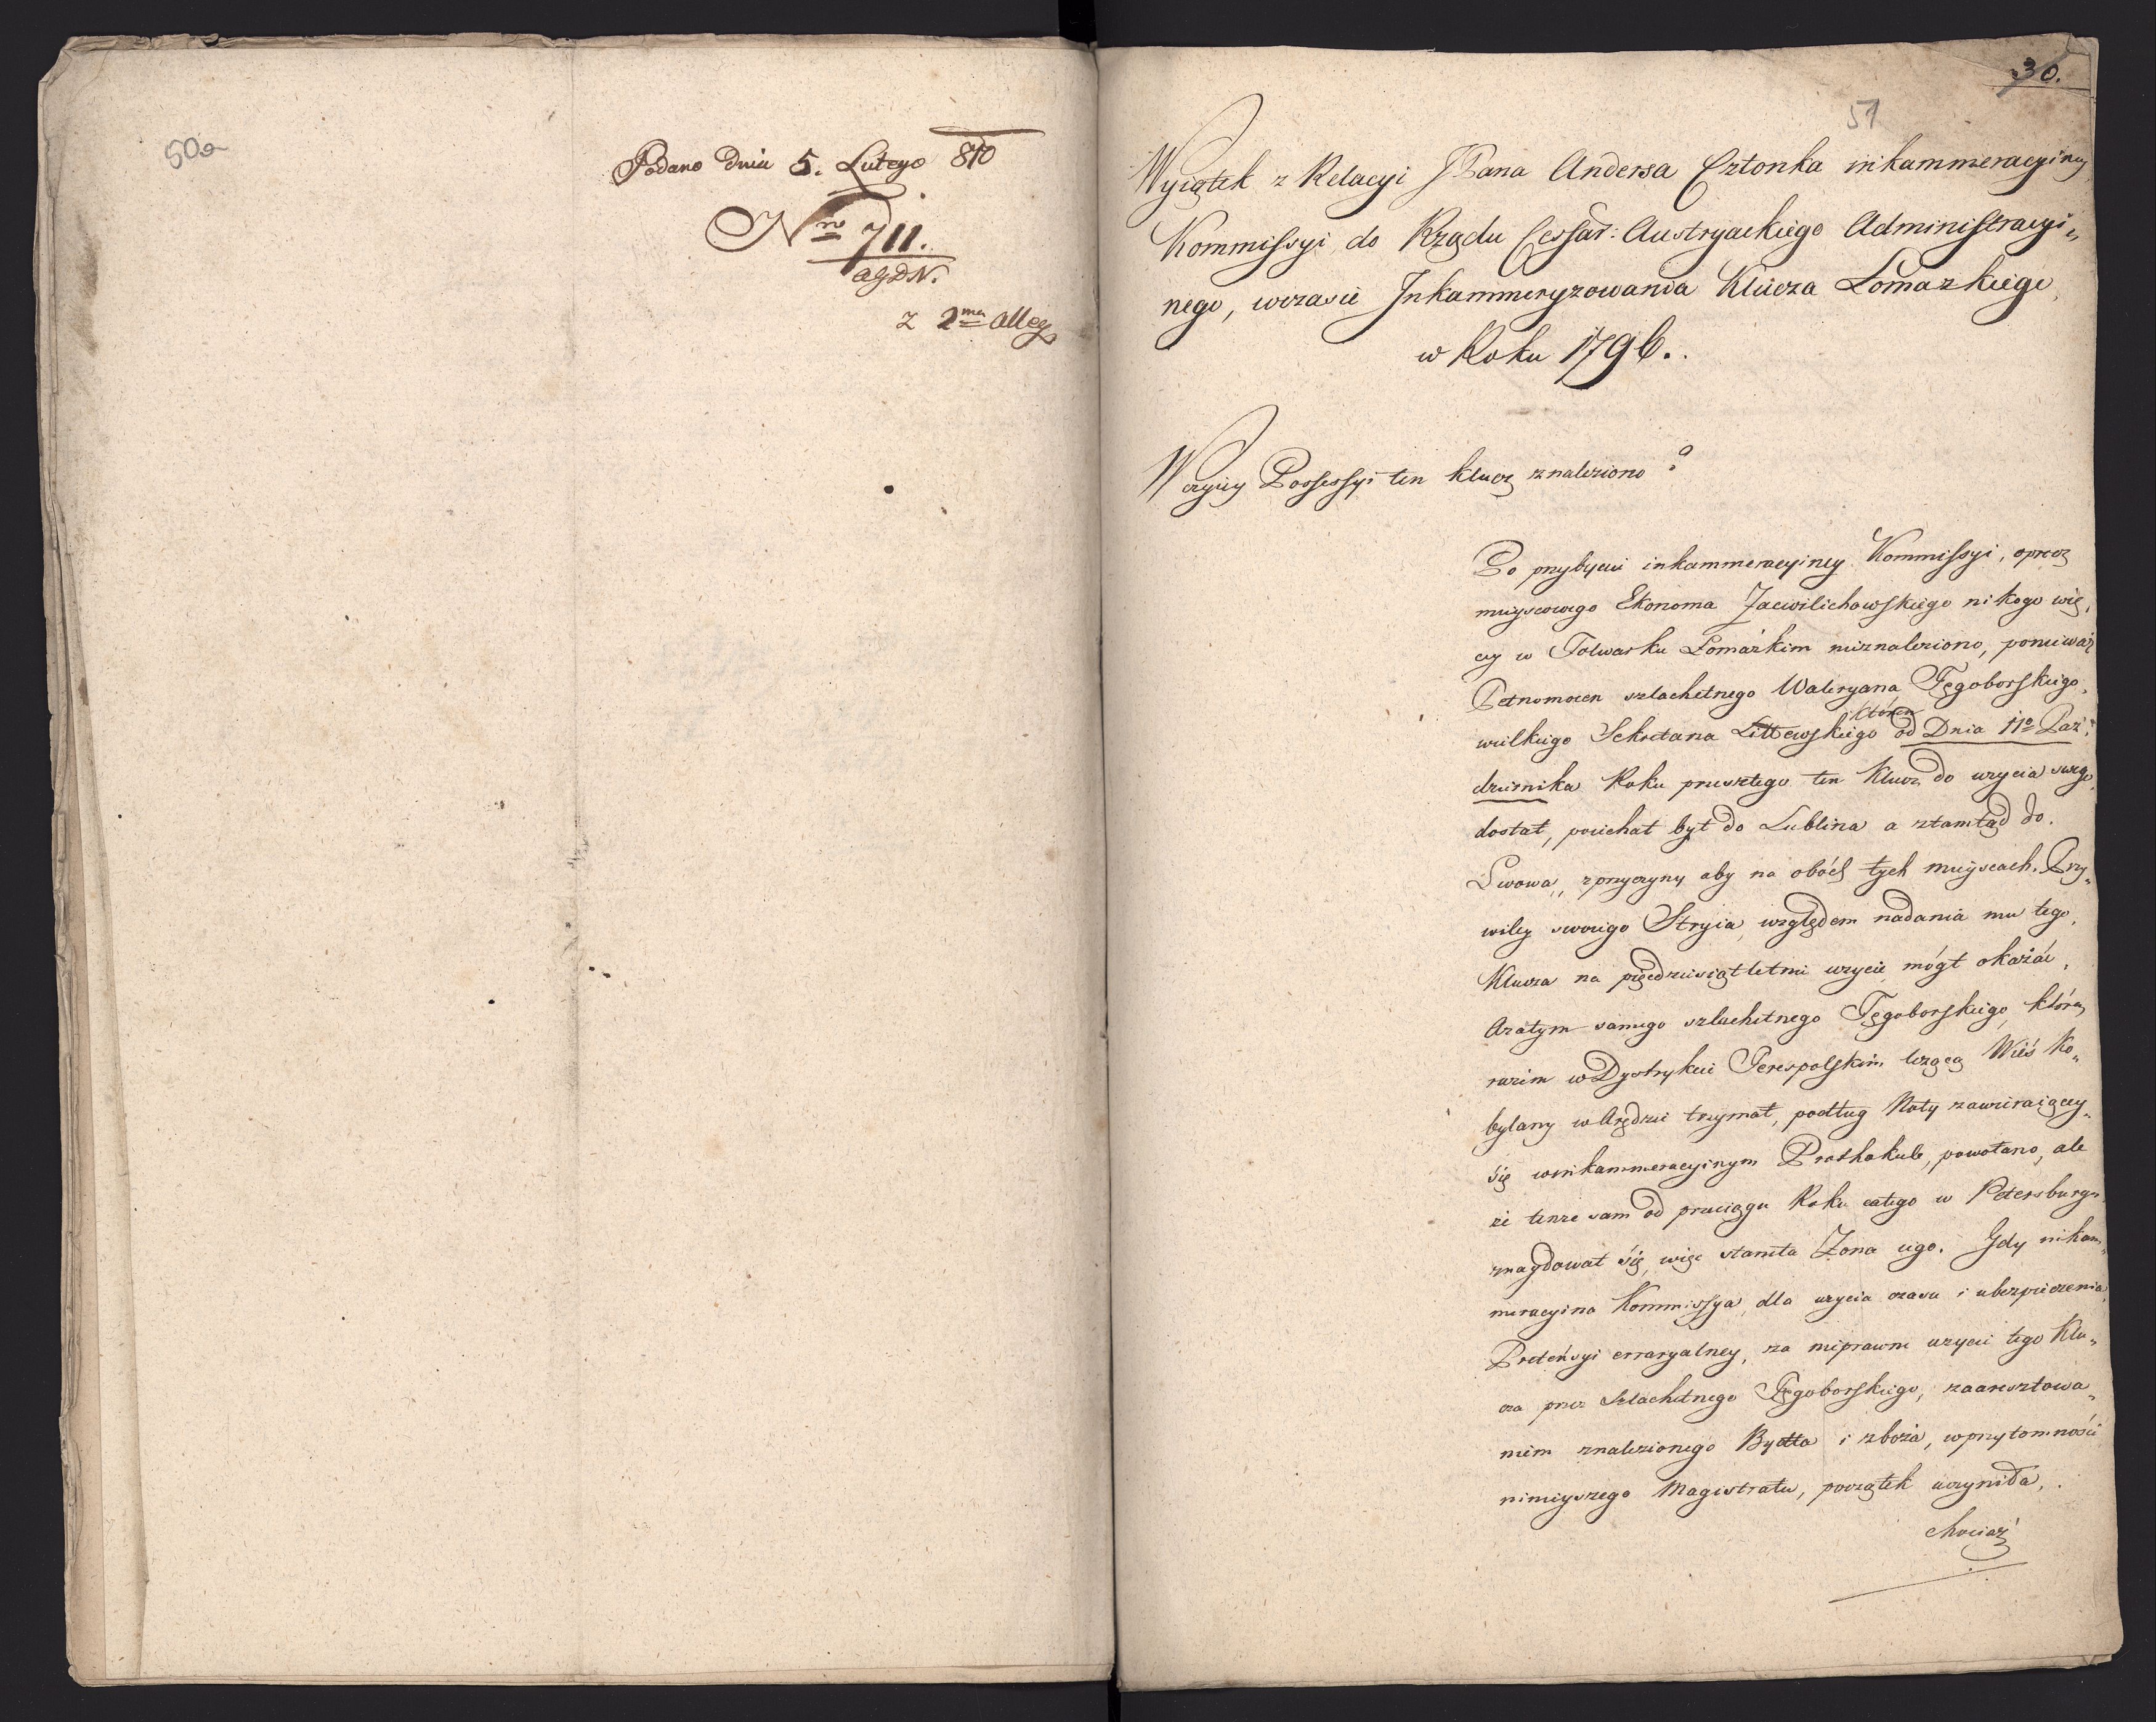 50a
Podano dnia 5. Lutego 810
Nro 711.
AGDN.
z 2ma alleg
30.
51
Wyiątek z Relacyi JPana Andersa Członka inkammeracyiney
Kommissyi do Rządu Cessar: Austryackiego Administracyi„
nego, wczasie Inkammeryzowania Klucza Łomazkiego
w Roku 1796.
W czyiey Possessyi ten klucz znaleziono?
Po przybyciu inkammeracyiney Kommissyi, oprocz
mieyscowego Ekonoma nikogo wię„
cey w Folwarku Łomazkim nieznaleziono, ponieważ
Pełnomocn szlachetnego Waleryana Tęgoborskiego
wielkiego Sekretarza Littewskiego któren od Dnia 11o Paź„
dziernika Roku przeszłego ten Klucz do uzycia swego
dostał, poiechał był do Lublina a ztamtąd do
Lwowa, zprzyczyny aby na oboch tych mieyscach Przy„
wiley swoiego Stryia, względem nadania mu tego
Klucza na pięcdziesiątletnie uzycie mógł okazać,
Azatym samego szlachetnego Tęgoborskiego, który
razim w Dystrykcie Terespolskim leżącą Wieś Ko„
bylany w Arędzie trzymał, podług Noty zawieraiącey
się winkammeracyinym Prothokule, powołano, ale
że tenże sam od przeciągu Roku całego w Petersburgu
znaydował się, więc stanęła Żona iego. Gdy inkam„
meracyina Kommissya, dla uzycia czasu i ubezpieczenia
Pretensyi erraryalney, za nieprawne uzycie tego Klu„
cza przez Szlachetnego Tęgoborskiego, zaaresztowa„
niem znalezionego Bydła i zboża, wprzytomności
nimieyszego Magistratu, początek uczyniła,
chociaż